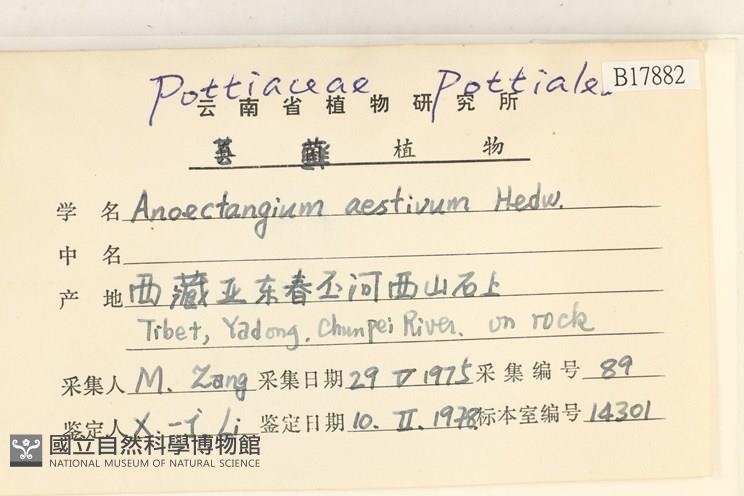 Pottiaceae Pottiales B17882
云南省植物研究所
植物
学名 Anoectangium aestivum Hedw.
中名
产地 西藏亚东春丕河西山石上
Tibet, Yadong. Chunpei River. on rock
采集人 M. Zang 采集日期 29 V 1975 采集编号 89
鉴定人 X. Li 鉴定日期 10. II. 1978 标本室编号 14301
國立自然科學博物館
NATIONAL MUSEUM OF NATURAL SCIENCE